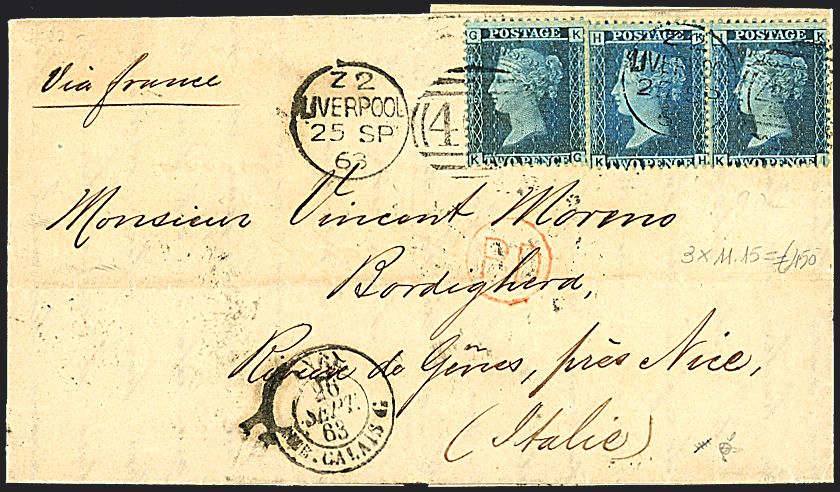 Via france
Z 2
LIVERPOOL
25 SP
63
4
G POSTAGE K
K TWO PENCE G
H POSTAGE K
K TWO PENCE H
I POSTAGE K
K TWO PENCE I
LIVER
Monsieur Vincent Moreno
PD
3 x 11.15 = £450
Bordighera,
Rivière de Gênes, près Nice,
(Italie)
26
SEPT.
63
AMB. CALAIS G.